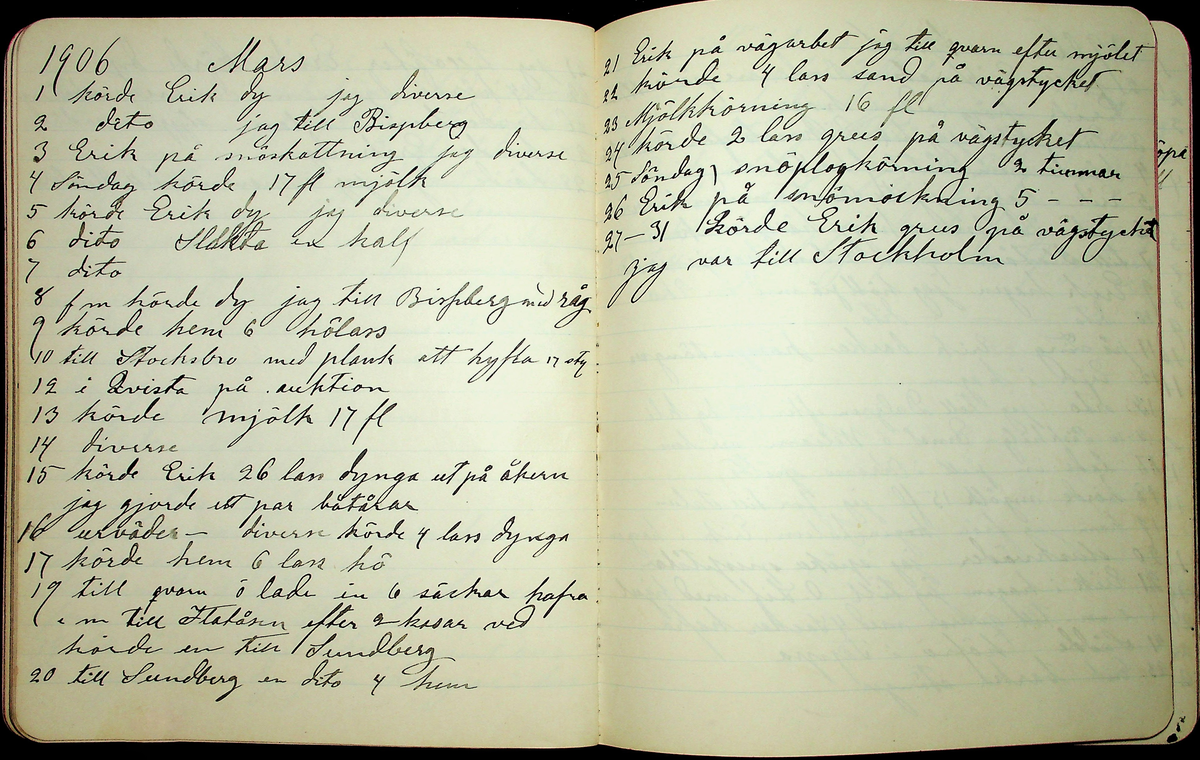 1906 Mars
1 körde Erik dy jag diverse
2 dito jag till Bispberg
3 Erik på snöskottning jag diverse
4 Söndag körde 17 fl mjölk
5 körde Erik dy jag diverse
6 dito Slakta en kalf
7 dito
8 f m körde dy jag till Bispberg med råg
9 körde hem 6 hölass
10 till Stocksbro med plank att hyfla 17 sty
12 i Qvista på auktion
13 körde mjölk 17 fl
14 diverse
15 körde Erik 26 lass dynga ut på åkern
jag gjorde ett par båtårar
16 urväder – diverse körde 4 lass dynga
17 körde hem 6 lass hö
19 till qvarn o lade in 6 säckar hafra
e m till Flatåsen efter 2 kasar ved
körde en till Sundberg
20 till Sundberg en dito 4 hem
21 Erik på vägarbet jag till qvarn efter mjölet
22 körde 4 lass sand på vägstycket
23 Mjölkkörning 16 fl
24 körde 2 lass grus på vägstycket
25 Söndag) snöplogkörning 2 timmar
26 Erik på snömockning 5 - - -
27–31 körde Erik grus på vägstycket
jag var till Stockholm